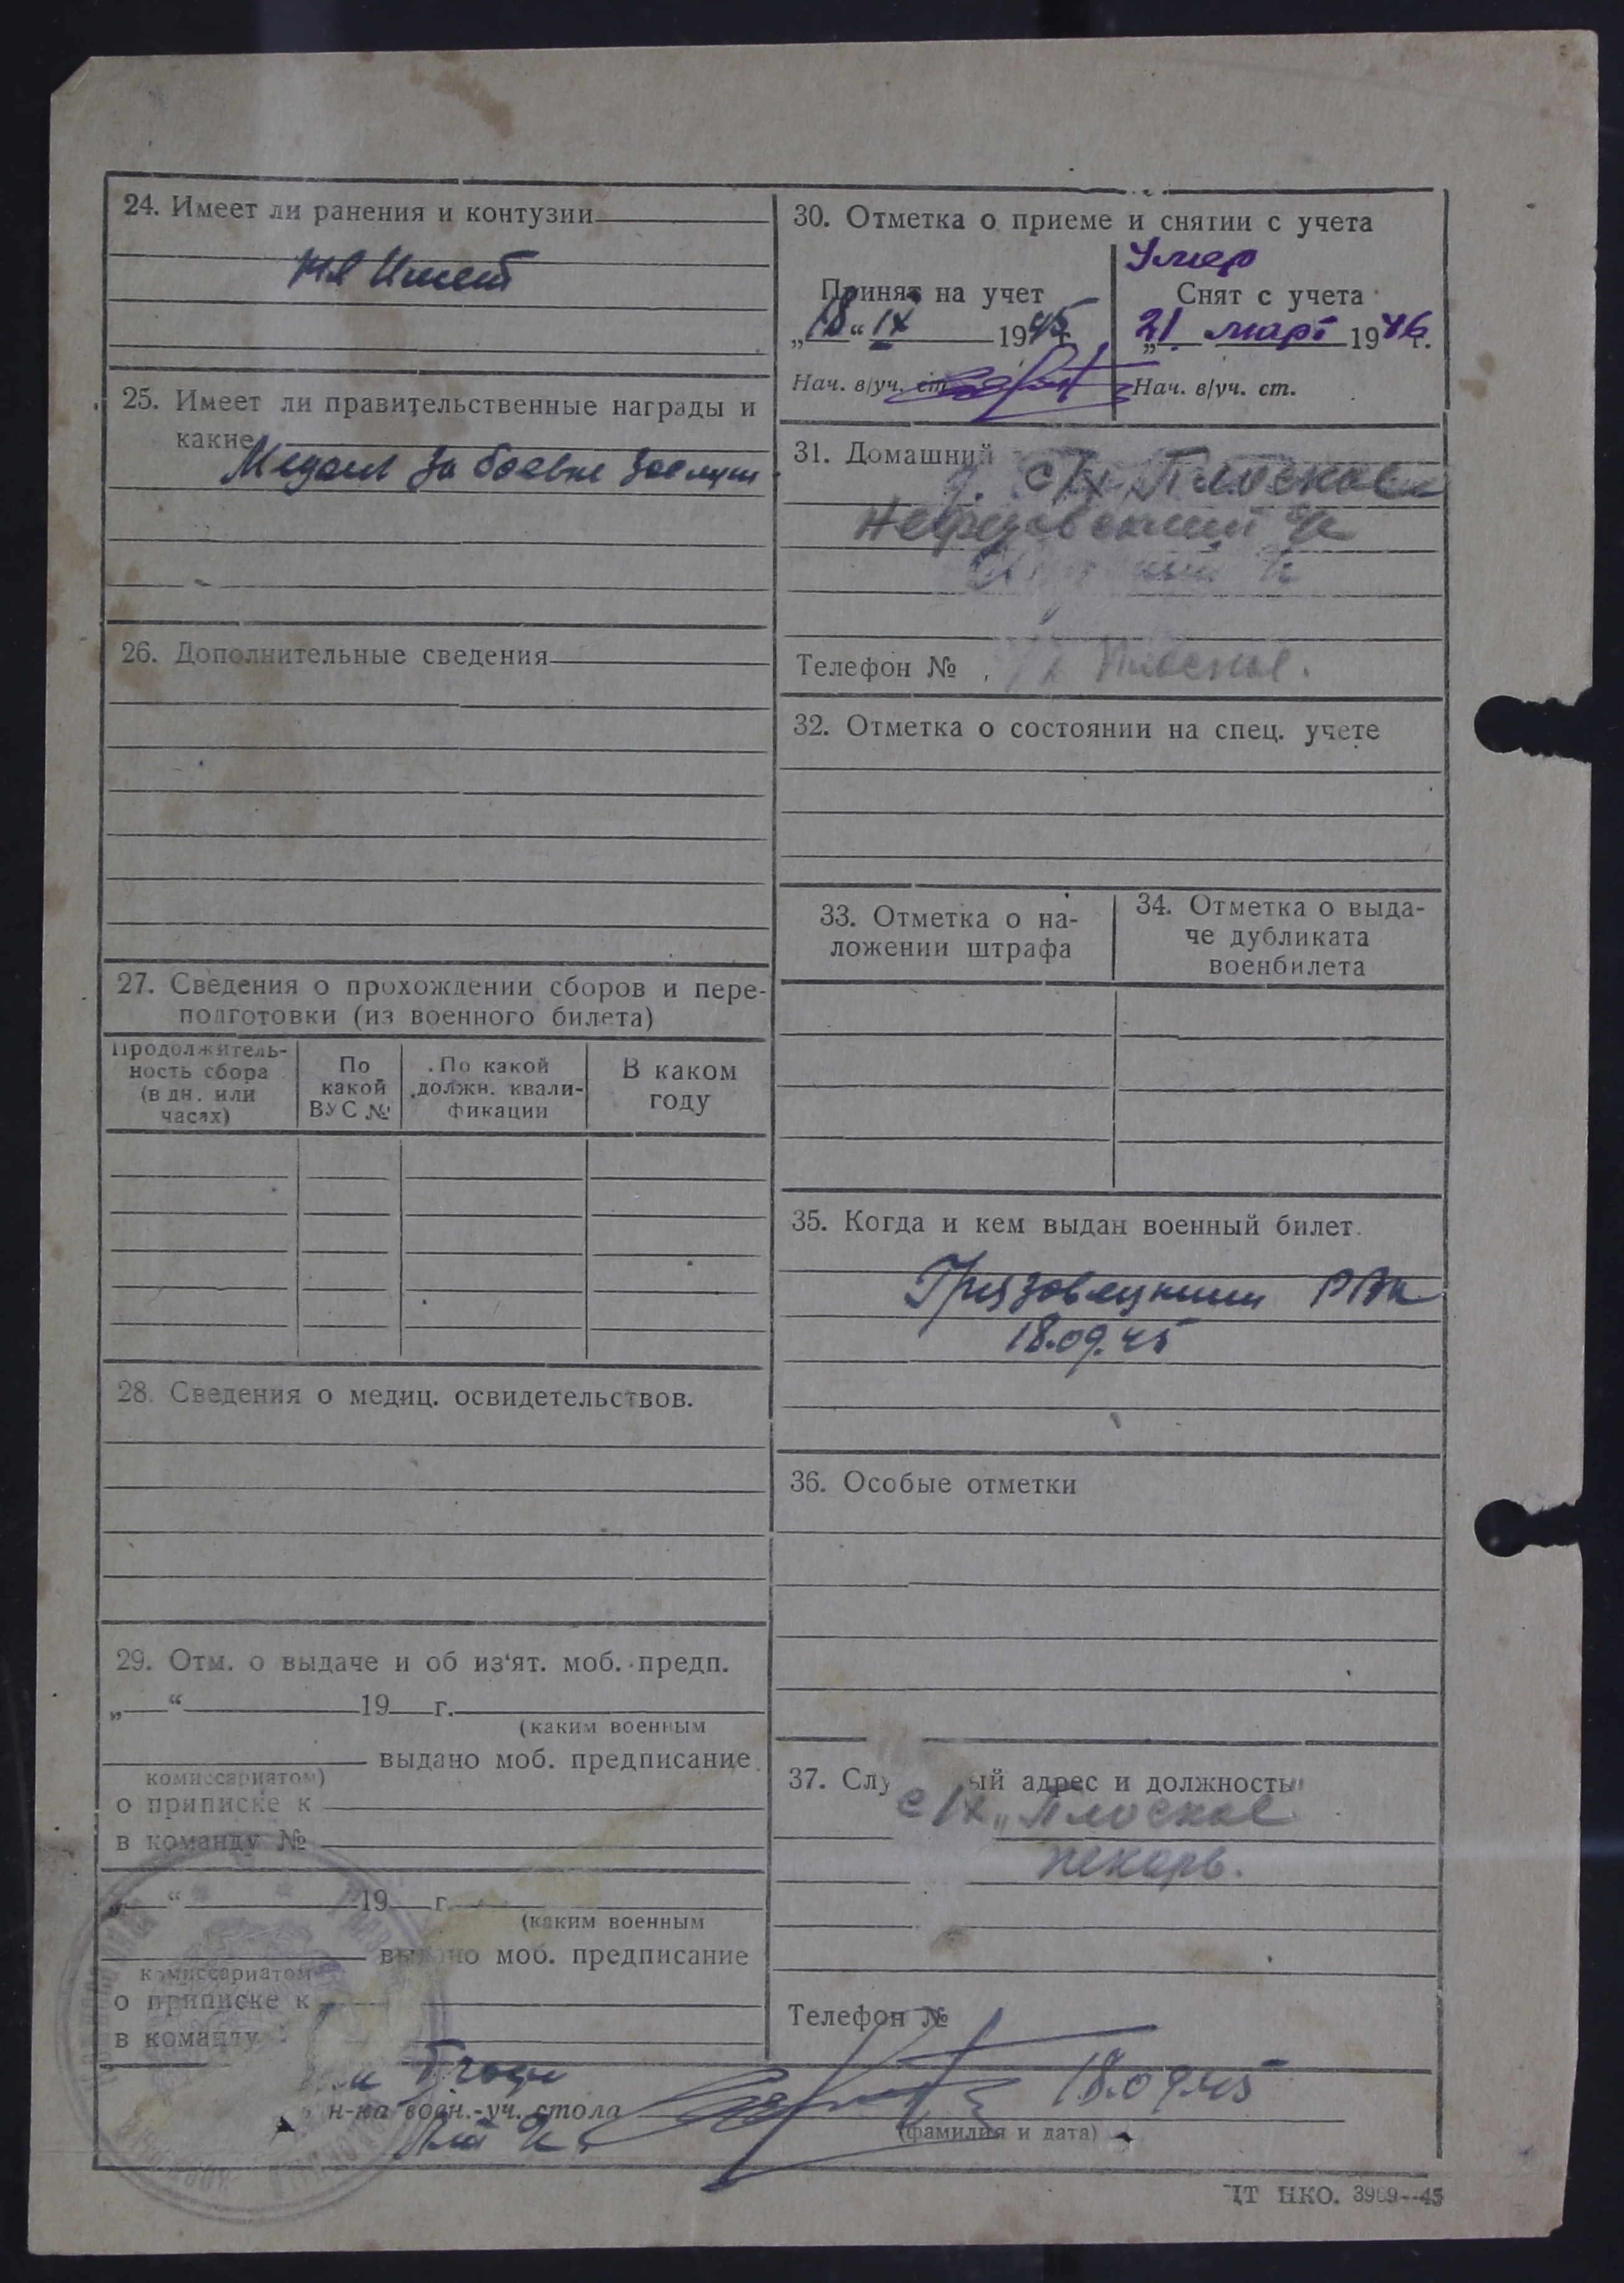 24. Имеет ли ранения и контузии
не Имеет
25. Имеет ли правительственные награды и
какие
Медаль За боевые заслуги
26. Дополнительные сведения
27. Сведения о прохождении сборов и пере-
подготовки (из военного билета)
Продолжитель-
ность сбора
(в дн. или
часах)
По
какой
ВУС №
По какой
должн. квали-
фикации
В каком
году
28. Сведения о медиц. освидетельствов.
29. Отм. о выдаче и об из‘ят. моб. предп.
„ “ 19 г.
(каким военным
выдано моб. предписание
комиссариатом)
о приписке к
в команду №
„ “ 19 г.
(каким военным
выдано моб. предписание
комиссариатом
о приписке к
в команду
30. Отметка о приеме и снятии с учета
Принят на учет
„18“ IX 1945 г.
Нач. в/уч. ст.
Умер
Снят с учета
„21 март 1946 г.
Нач. в/уч. ст.
31. Домашний
с/х Плоское
с/с
Телефон № , Плоское.
32. Отметка о состоянии на спец. учете
33. Отметка о на-
ложении штрафа
34. Отметка о выда-
че дубликата
военбилета
35. Когда и кем выдан военный билет.
Грязовецким РВК
18.09.45
36. Особые отметки
37. Слу ый адрес и должность
с/х „Плоское
пекарь.
Телефон №
н-ка воен.-уч. стола
18.09.45
(фамилия и дата)
ЦТ НКО. 3969--45